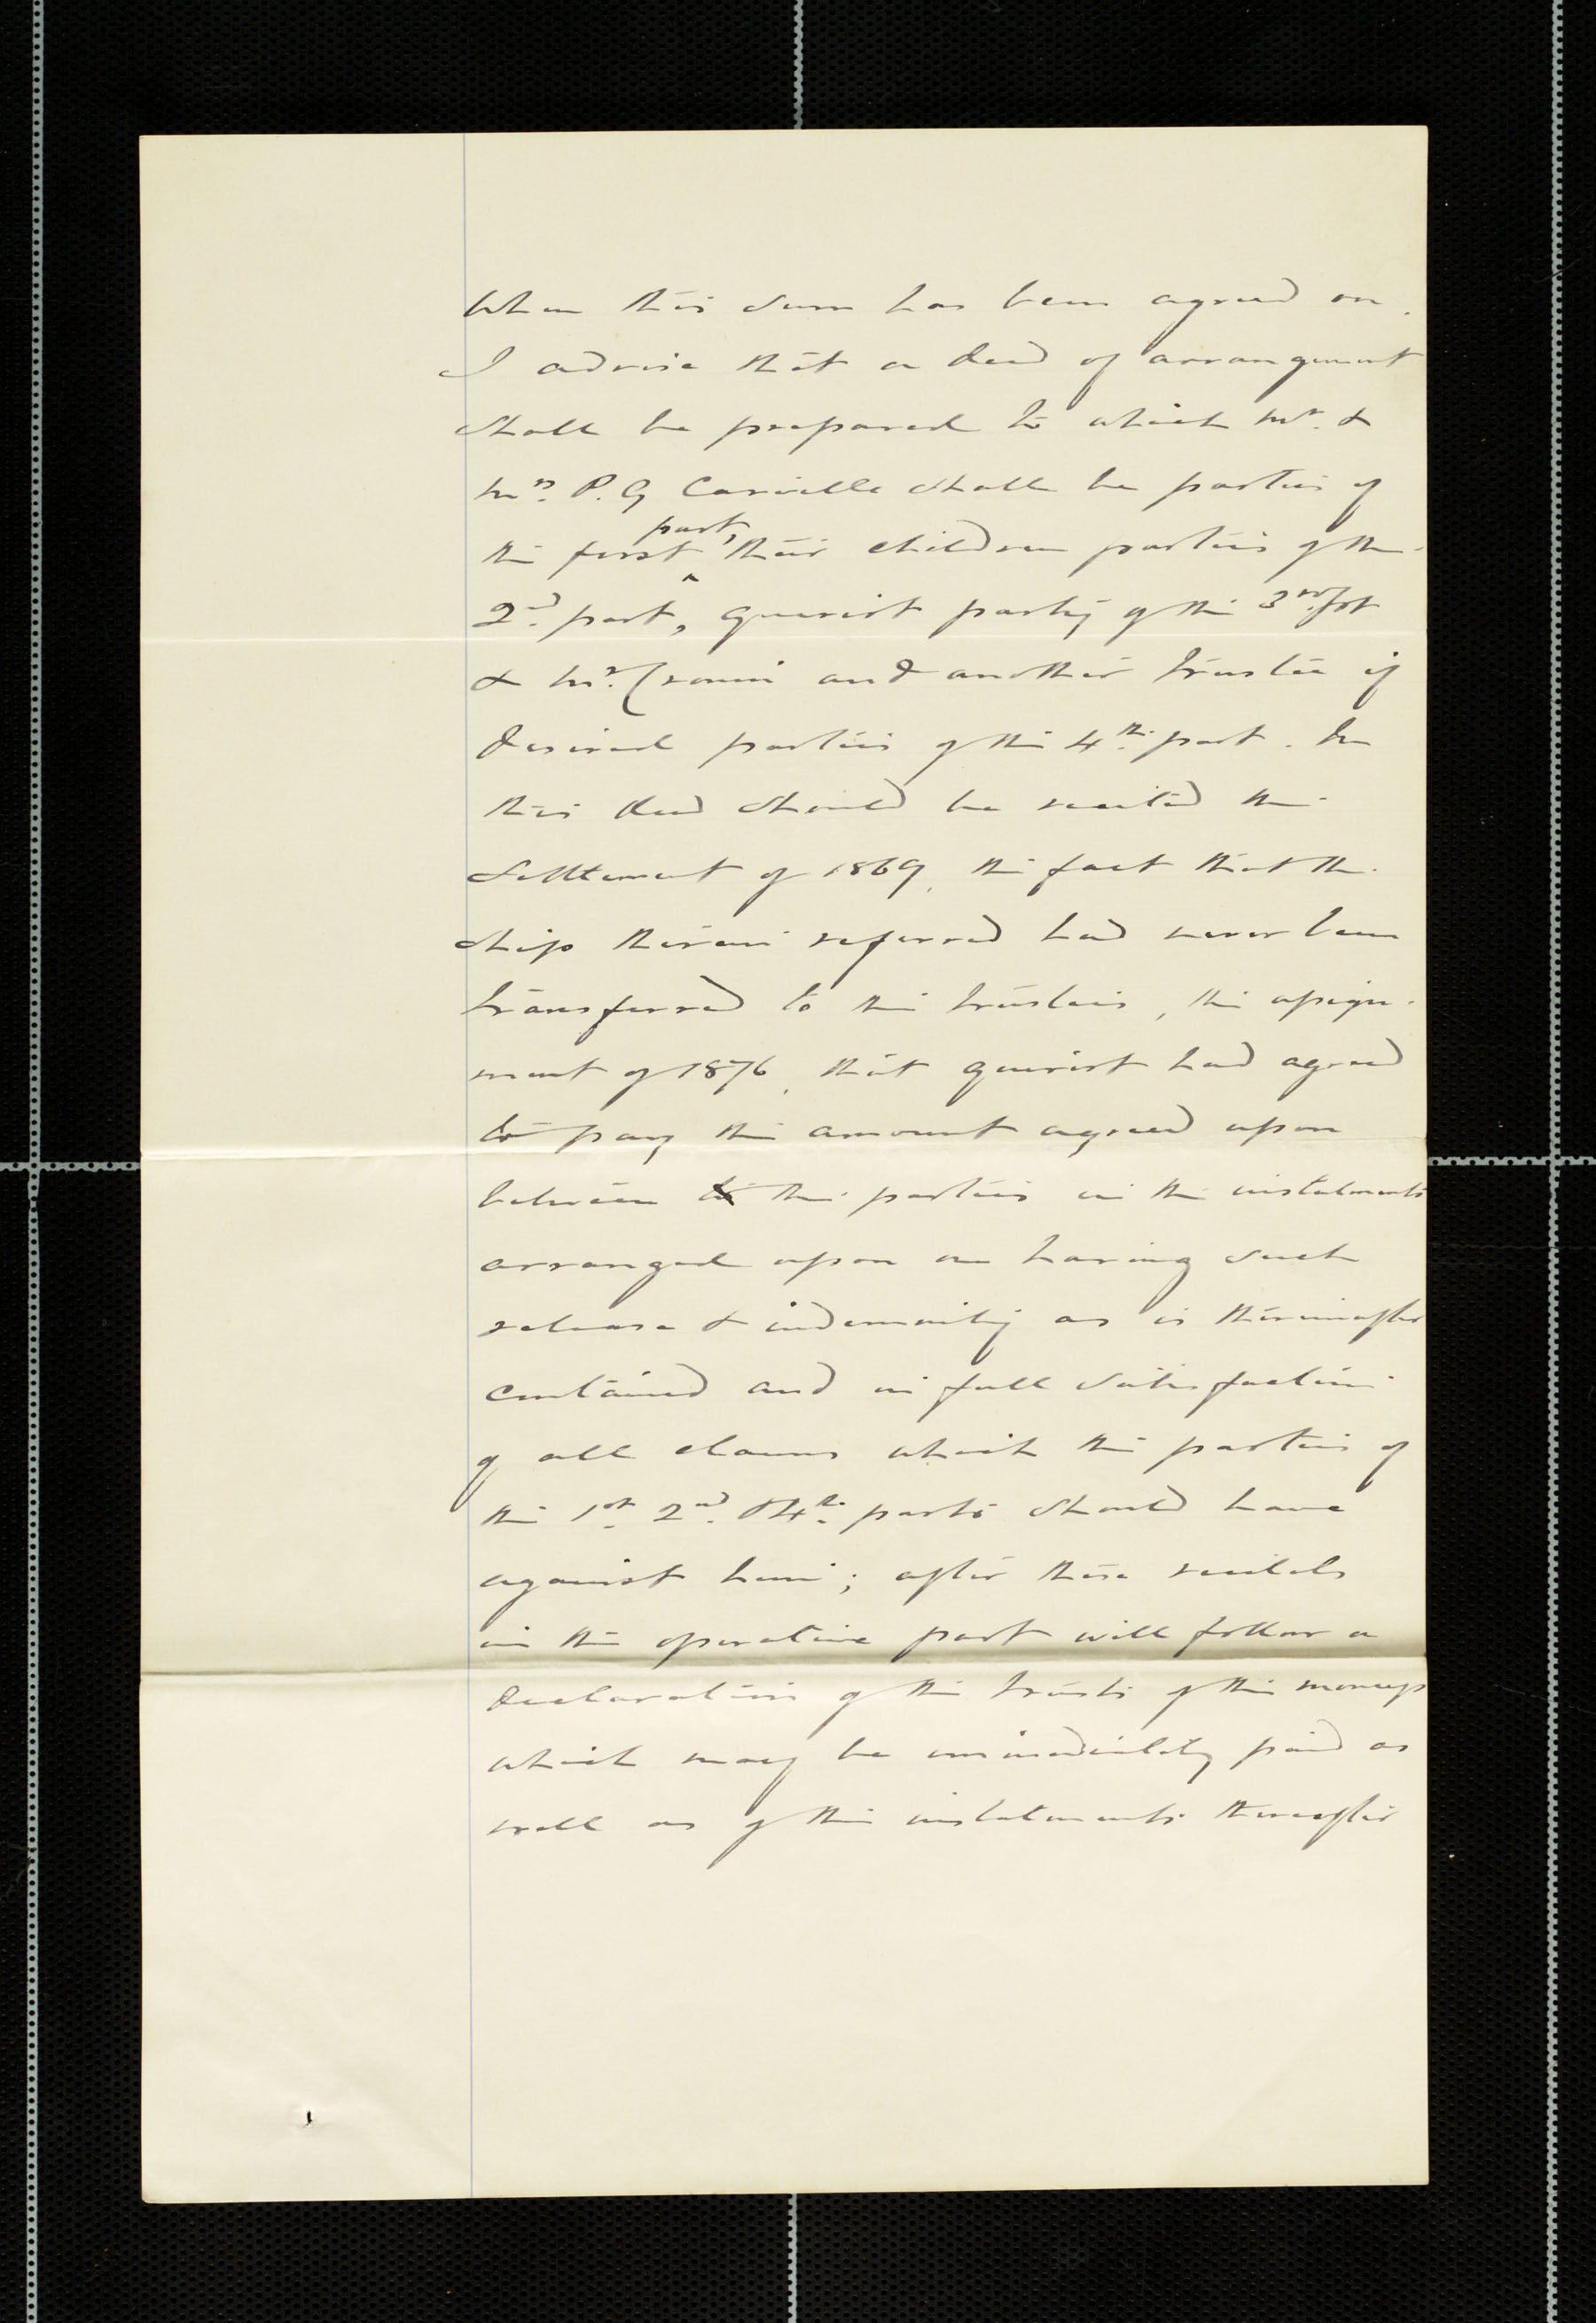 When this sum has been agreed on.
I advise that a deed of arrangement
shall be prepared to which Mr. &
Mrs. P. G Carvill shall be parties of
the first part, their children parties of the
2nd. part, querist party of the 3rd. pt
& Mr. Cronin and another trustee if
desired parties of the 4th. part. In
this deed should be recited the
Settlement of 1869, the fact that the
ship therein referred had never been
transferred to the trustees, the assign-
ment of 1876, that querist had agreed
to pay the amount agreed upon
between the parties in the instalments
arranged upon on having such
release & indemnity as is thereinafter
contained and in full satisfaction
of all claims which the parties of
the 1st. 2nd. & 4th. parts should have
against him; after these recitals
in the operative part will follow a
declaration of the trusts of the moneys
which may be immediately paid as
well as of the instalments thereafter